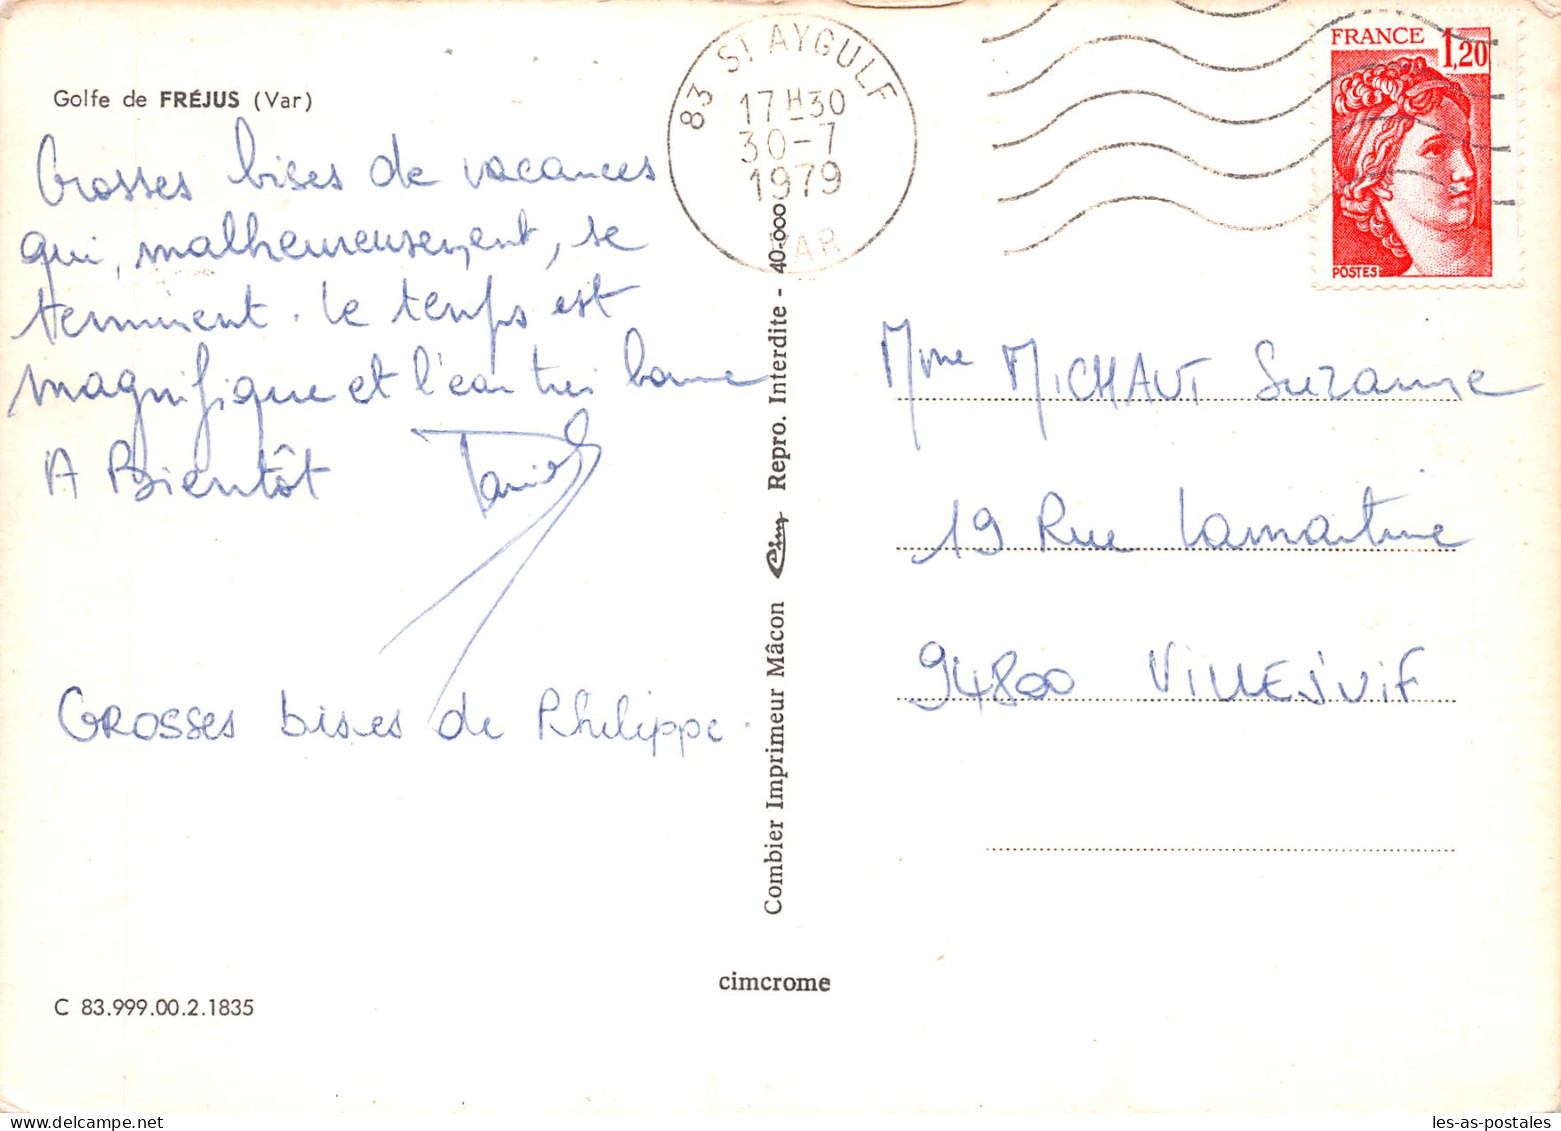 Golfe de FRÉJUS (Var)
Grosses bises de vacances
qui, malheureusement, se
terminent. Le temps est
magnifique et l'eau très bonne
A Bientôt
GROSSES bises de Philippe.
C 83.999.00.2.1835
83 ST AYGULF
17H30
30-7
1979
VAR
Combier Imprimeur Mâcon Cim Repro. Interdite - 40-000
cimcrome
FRANCE 1,20
POSTES
Mme MICHAUT Suzanne
19 Rue Lamartine
94800 VILLEJUIF
les-as-postales